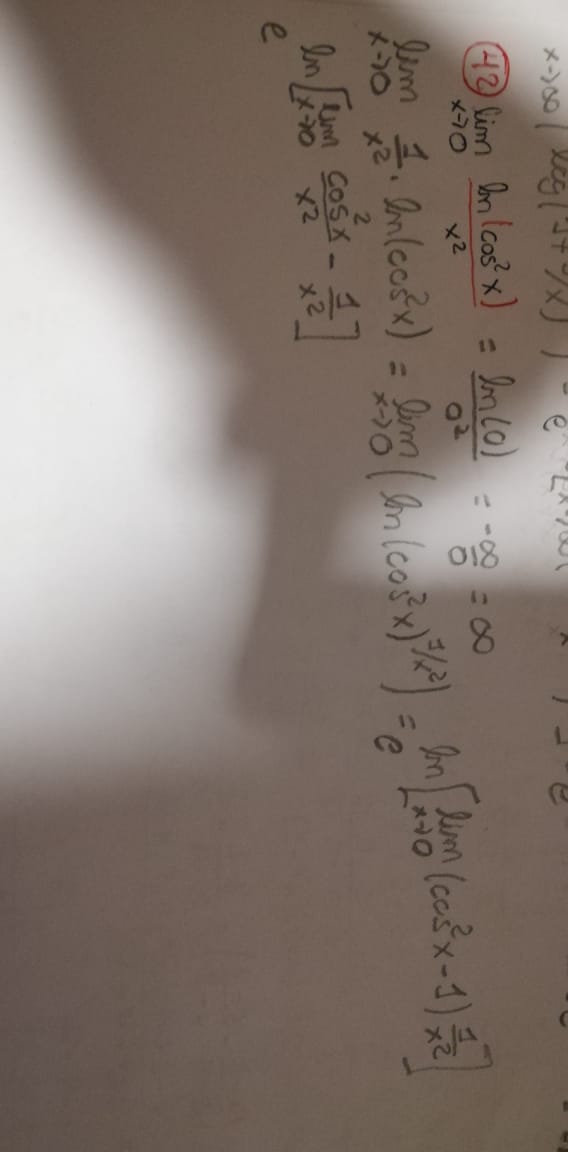 x→∞ ( log(1+
42 lim x→0 ln(cos²x) / x² = ln(0) / 0² = -∞/0 = ∞
lim x→0 1/x² · ln(cos²x) = lim x→0 ( ln(cos²x)^1/x² ) = e^ln[ lim x→0 (cos²x - 1) 1/x² ]
e^ln[ lim x→0 cos²x/x² - 1/x² ]